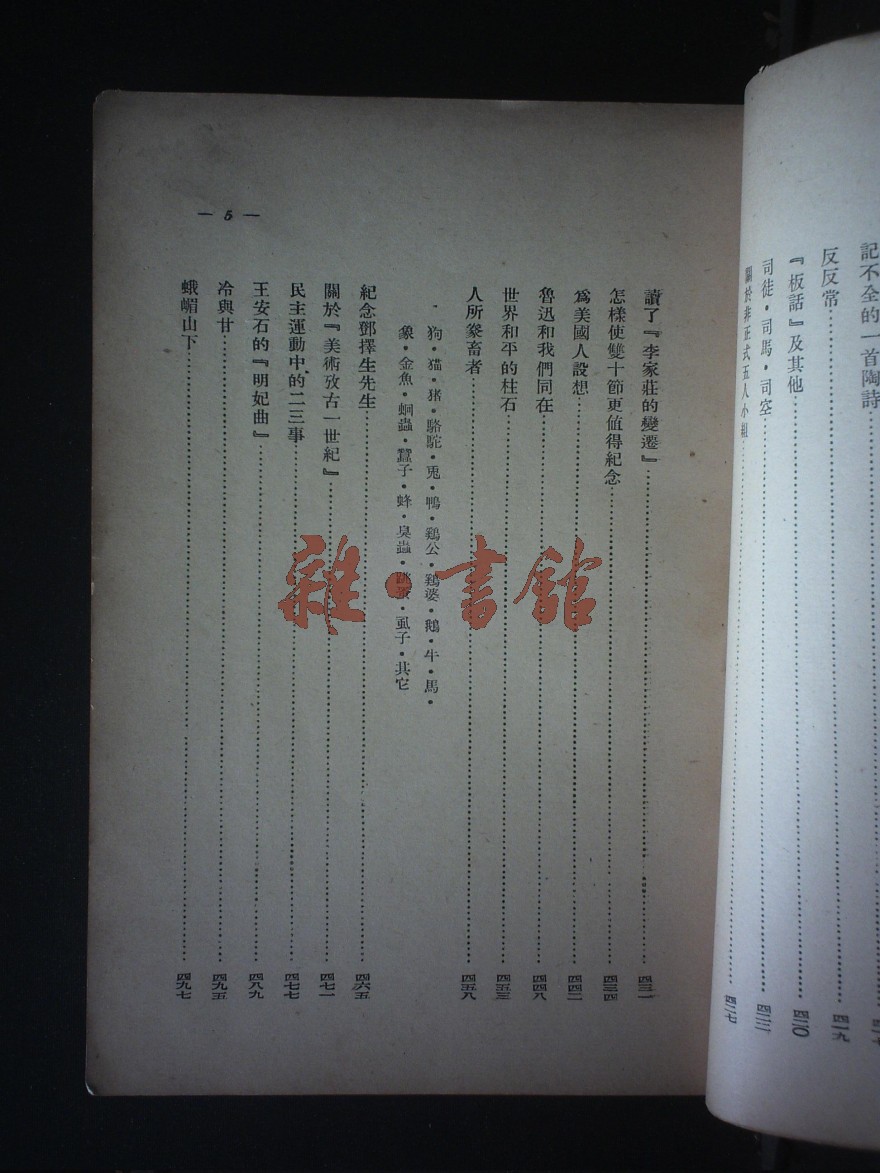 記不全的一首陶詩
反反常……四一九
『板話』及其他……四二〇
司徒・司馬・司空……四二三
關於非正式五人小組……四二七
— 5 —
讀了『李家莊的變遷』……四三一
怎樣使雙十節更值得紀念……四三四
爲美國人設想……四四二
魯迅和我們同在……四四八
世界和平的柱石……四五三
人所豢畜者……四五八
狗・猫・猪・駱駝・兎・鴨・鷄公・鷄婆・鵝・牛・馬・
象・金魚・蛔蟲・蠶子・蜂・臭蟲・跳蚤・虱子・其它
紀念鄧擇生先生……四六五
關於『美術攷古一世紀』……四七一
民主運動中的二三事……四七七
王安石的『明妃曲』……四八九
冷與甘……四九五
峨嵋山下……四九七
雜・書館